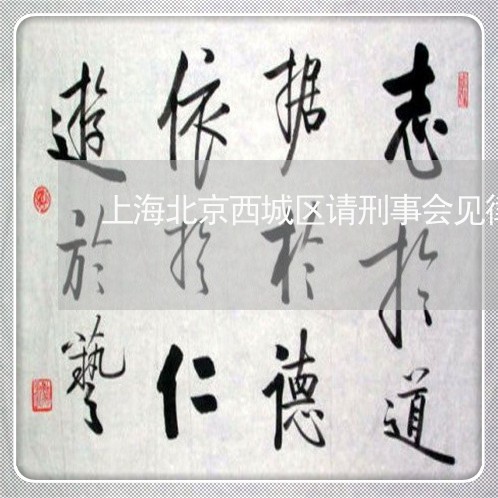 志於道
据於德
依於仁
遊於藝
上海北京西城区请刑事会见